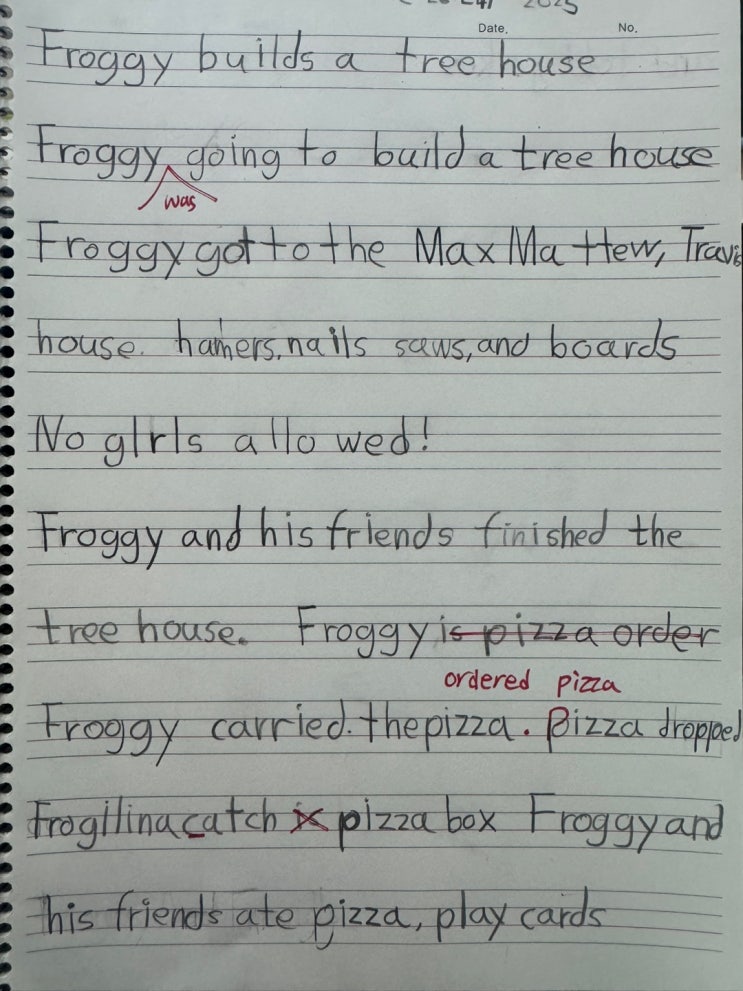 2025
Date. No.
Froggy builds a tree house
Froggy going to build a tree house
was
Froggy got to the Max Mattew, Travis
house. hamers, nails saws, and boards
No girls allowed!
Froggy and his friends finished the
tree house. Froggy is pizza order
ordered pizza
Froggy carried. the pizza. Pizza dropped
Frogilina catch pizza box Froggy and
his friends ate pizza, play cards